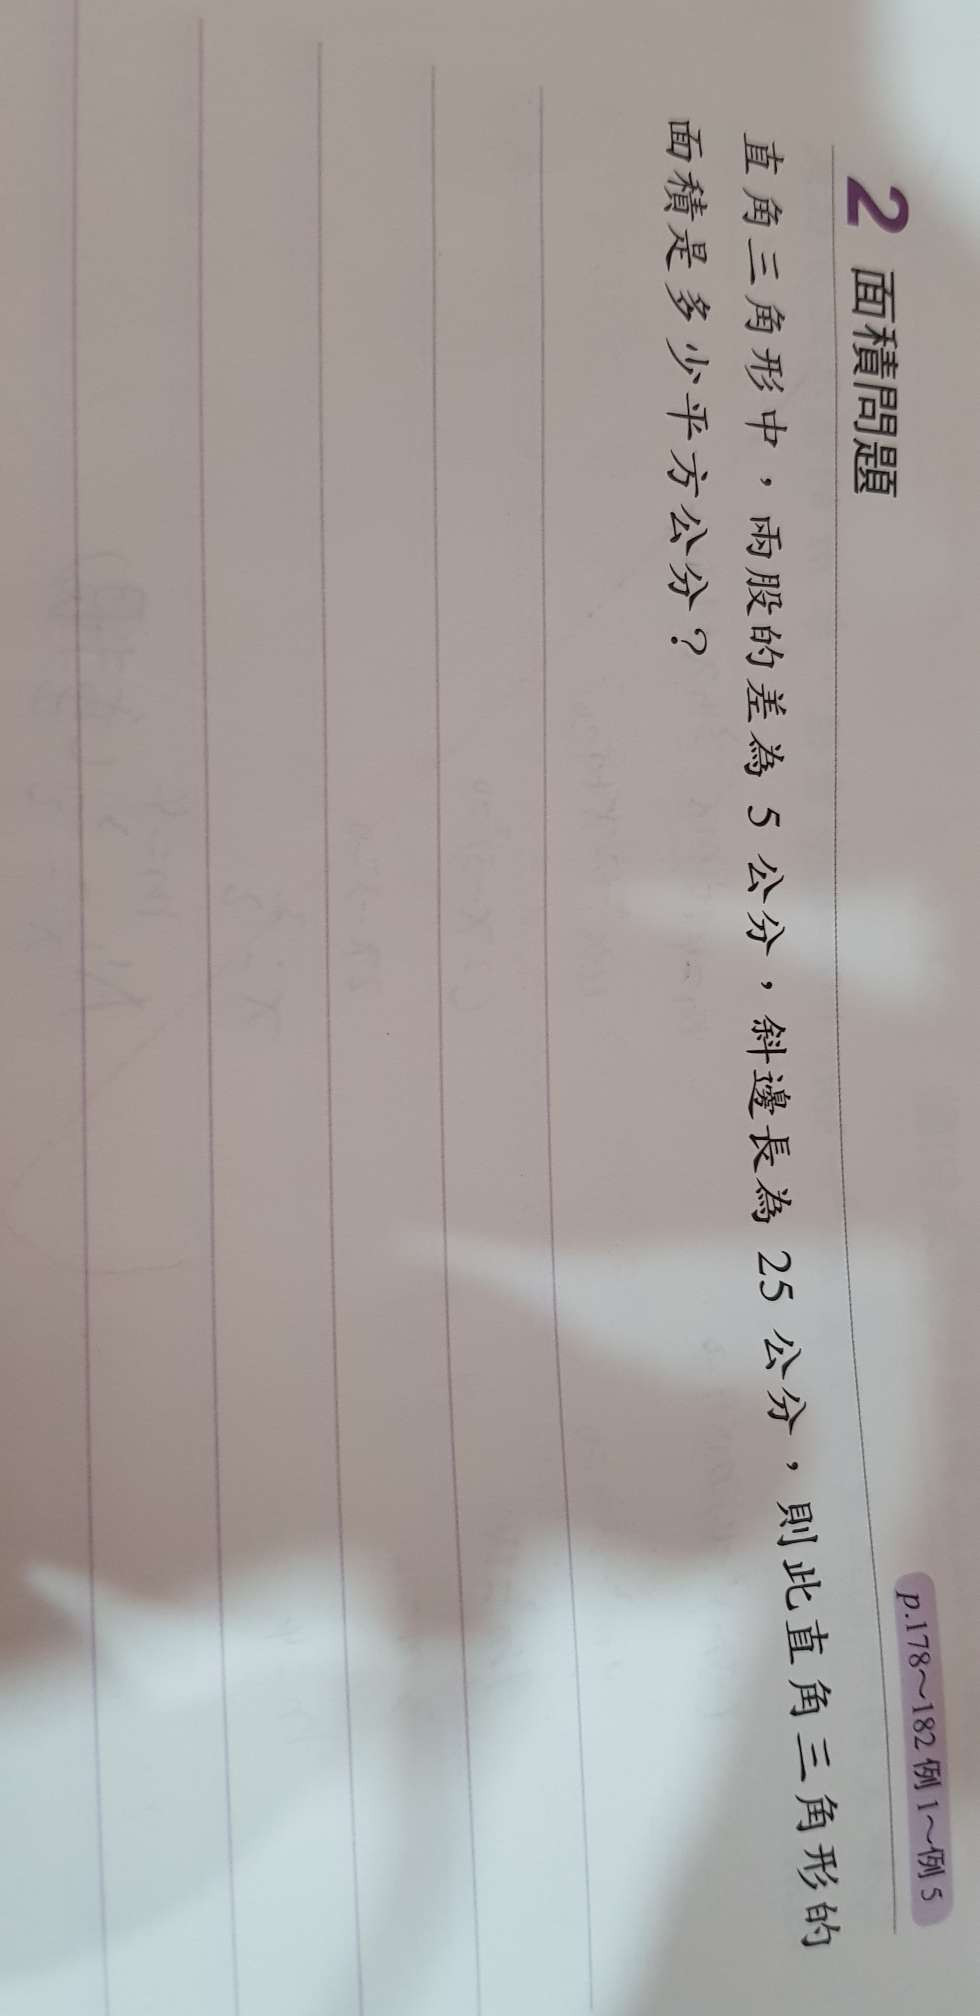 2 面積問題
p.178～182 例 1～例 5
直角三角形中，兩股的差為 5 公分，斜邊長為 25 公分，則此直角三角形的
面積是多少平方公分？